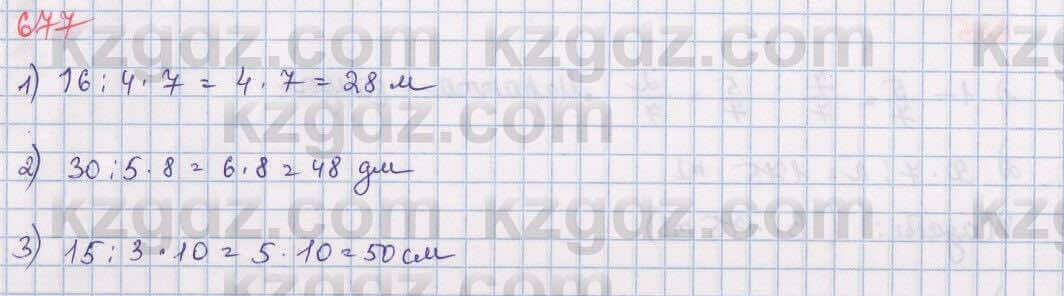 677
kzgdz.com kzgdz.com kzgdz
1) 16 : 4 · 7 = 4 · 7 = 28 м
kzgdz.com
2) 30 : 5 · 8 = 6 · 8 = 48 дм
kzgdz.com kzgdz.com kzgdz
3) 15 : 3 · 10 = 5 · 10 = 50 см
kzgdz.com